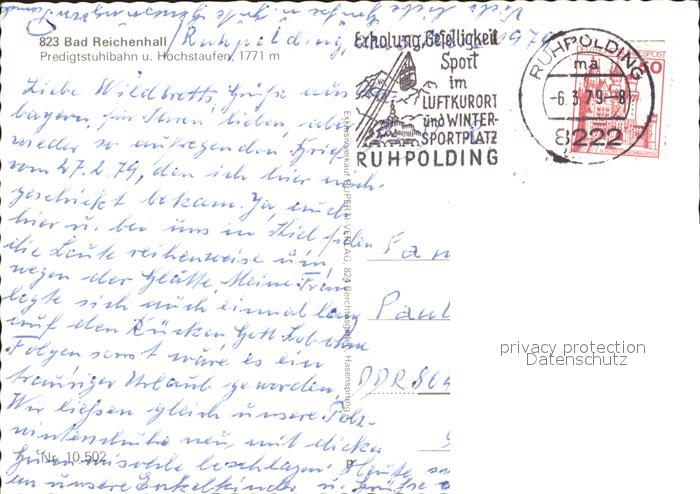 823 Bad Reichenhall
Predigtstuhlbahn u. Hochstaufen, 1771 m
Ruhpolding,
Erholung, Geselligkeit
Sport
im
LUFTKURORT
und WINTER-
SPORTPLATZ
RUHPOLDING
RUHPOLDING
ma
-6.3.79-8
8222
Liebe Wildbretts, Grüße aus
bayern, für Ihren lieben,
wieder so aufregenden Brief
vom 27.2.79, den ich hier nach-
geschickt bekam. Ja, auch
hier u. bei uns in Kiel fielen
die Leute reihenweise um,
wegen der Glätte. Meine Frau
legte sich auch einmal lang
auf den Rücken Gott Lob ohne
Folgen sonst wäre es ein
trauriger Urlaub geworden.
Wir ließen gleich unsere Pelz-
winterschuhe neu mit dicker
Gummisohle beschlagen. Heute
an unsere Enkelkinder u. Grüße
Fam
Paul
DDR 804
Nr. 10.502
privacy protection
Datenschutz